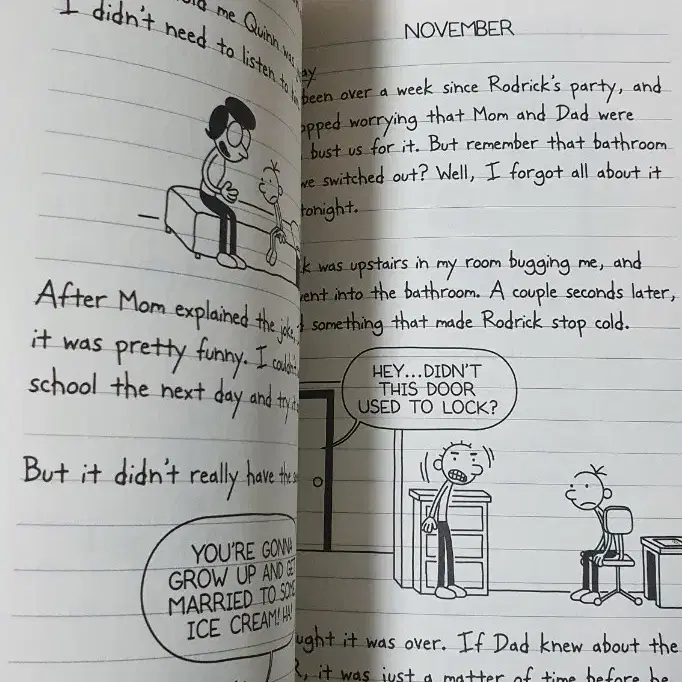 me Quinn was
I didn't need to listen to
After Mom explained the joke,
it was pretty funny. I couldn't
school the next day and try
But it didn't really have the
YOU'RE GONNA
GROW UP AND GET
MARRIED TO SOME
ICE CREAM! HA!
NOVEMBER
been over a week since Rodrick's party, and
worrying that Mom and Dad were
bust us for it. But remember that bathroom
switched out? Well, I forgot all about it
tonight.
was upstairs in my room bugging me, and
into the bathroom. A couple seconds later,
something that made Rodrick stop cold.
HEY...DIDN'T
THIS DOOR
USED TO LOCK?
it was over. If Dad knew about the
it was just a matter of time before he